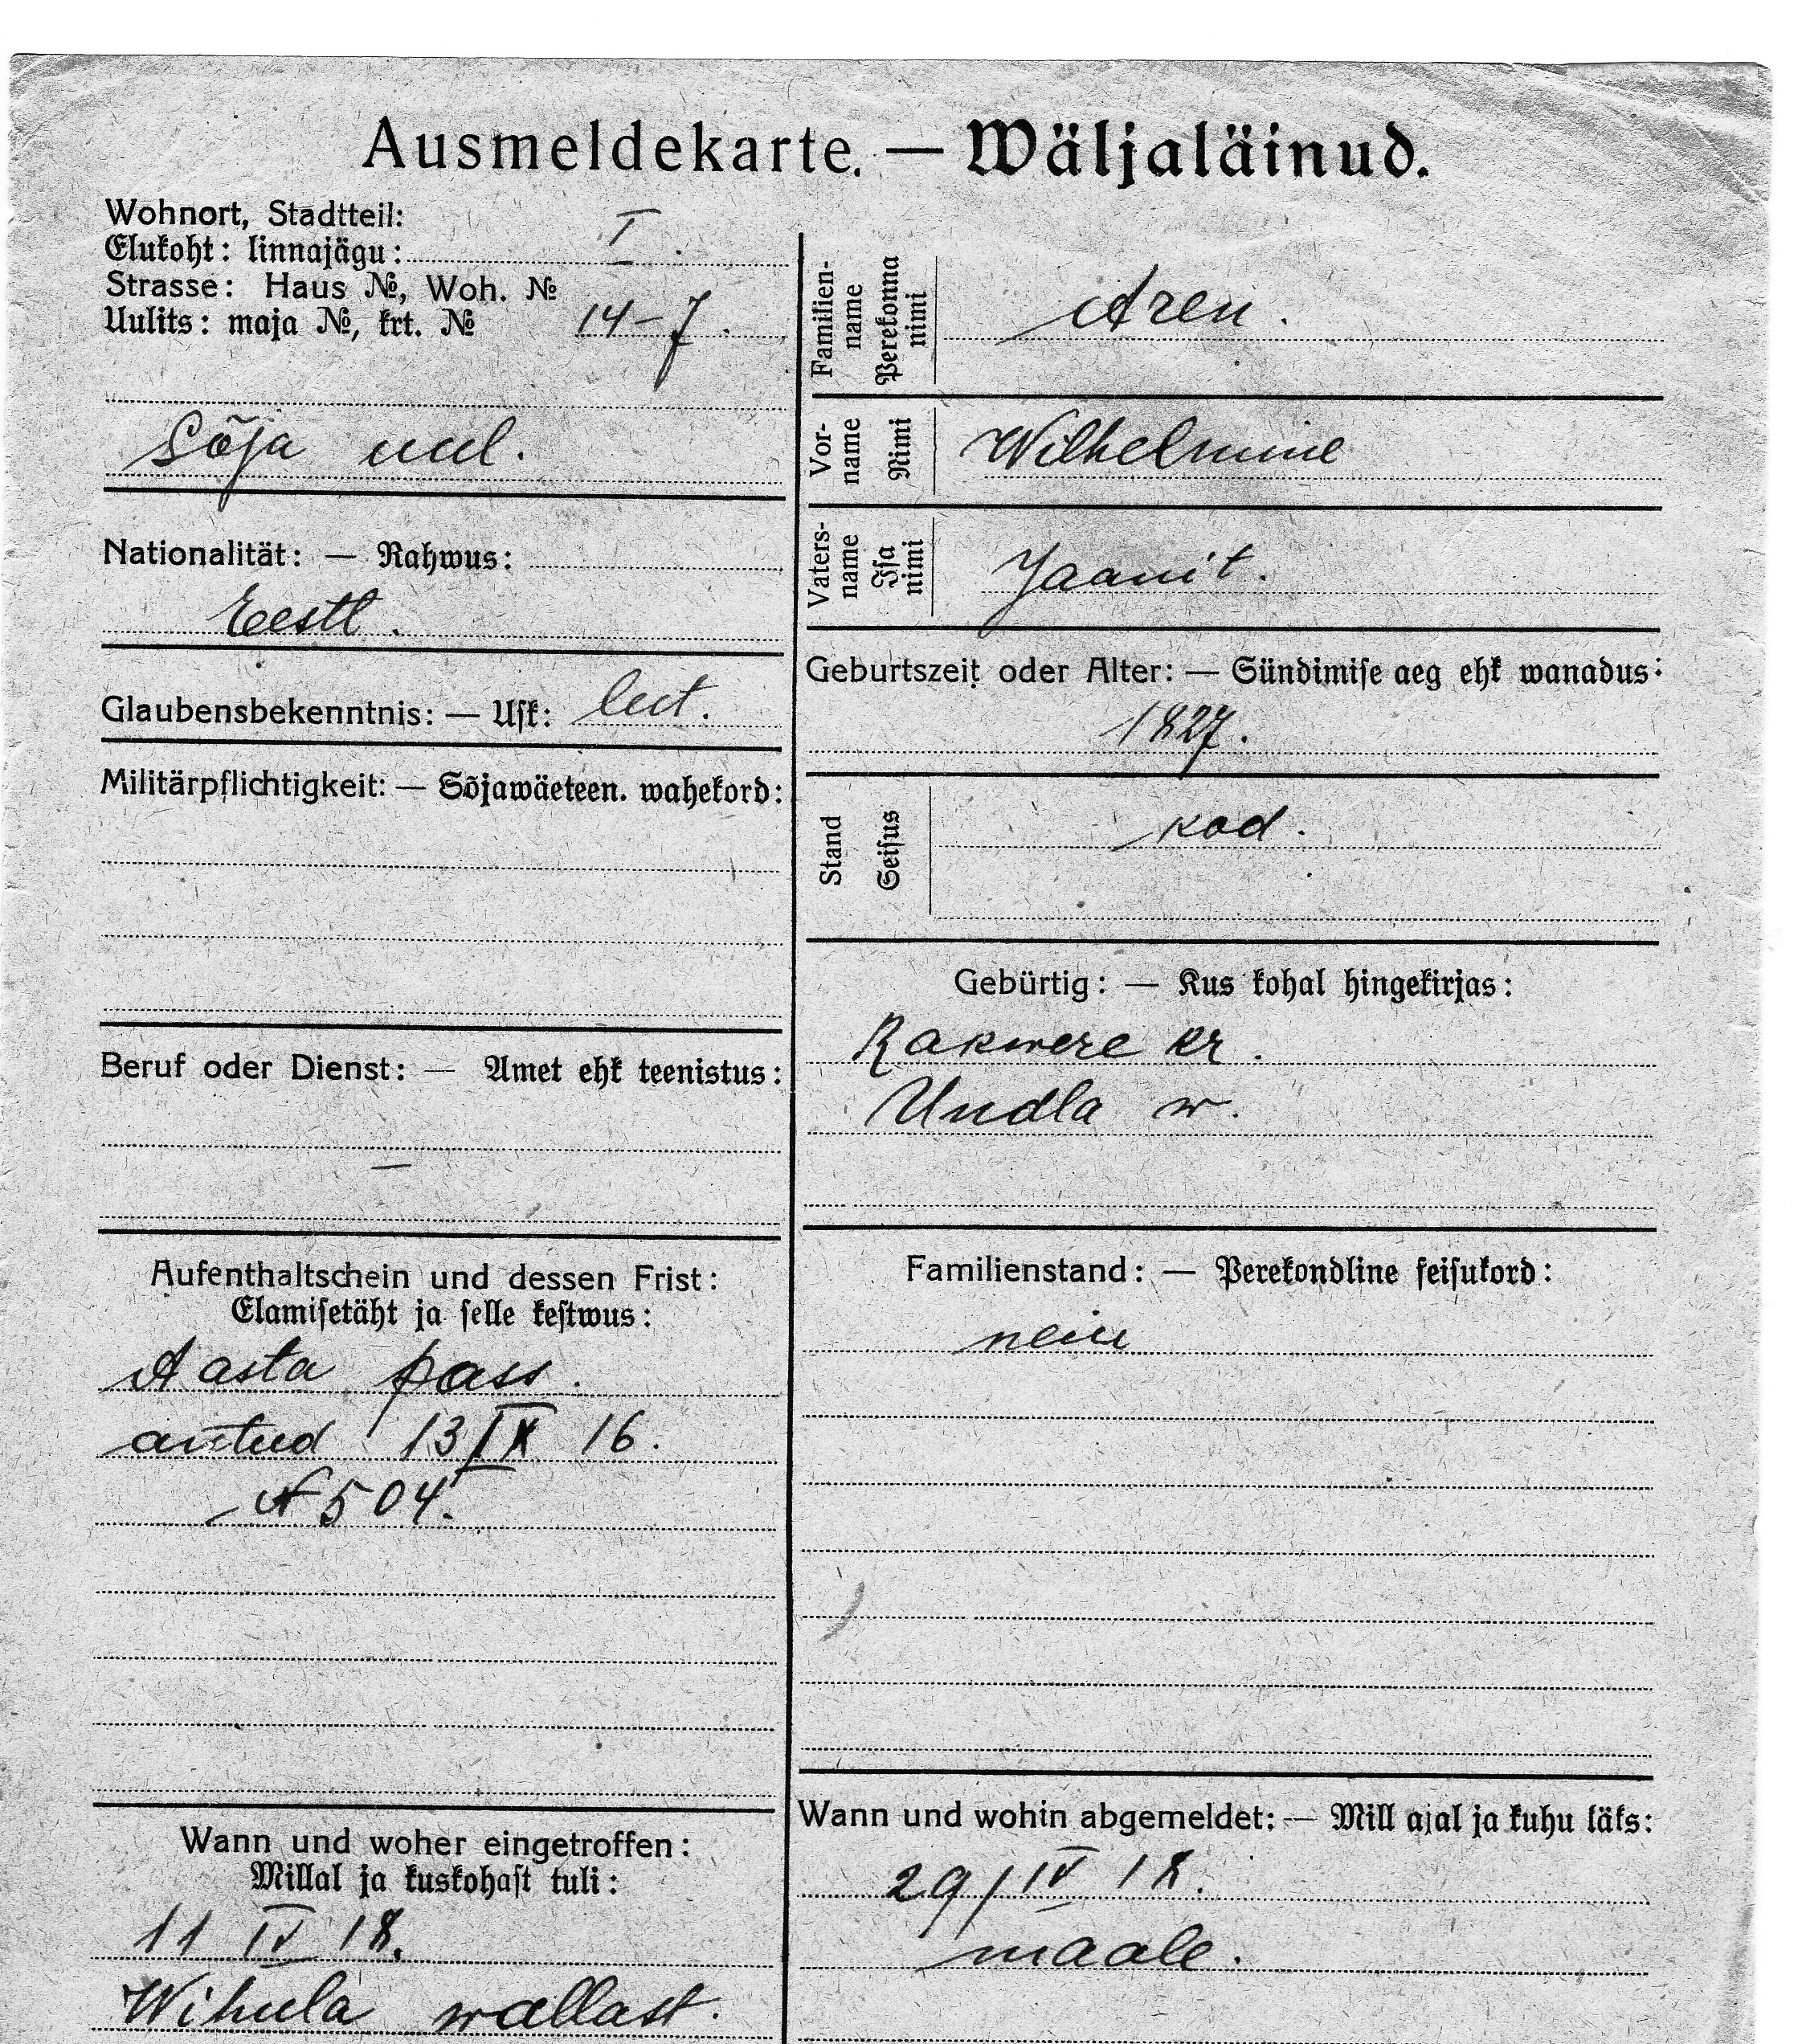 Ausmeldekarte. — Wäljaläinud.
Wohnort, Stadtteil:
Elukoht: linnajägu: I.
Strasse: Haus №, Woh. №
Uulits: maja №, krt. № 14-7.
Sõja uul.
Nationalität: — Rahwus:
Eestl.
Glaubensbekenntnis: — Usk: lut.
Militärpflichtigkeit: — Sõjawäeteen. wahekord:
Beruf oder Dienst: — Amet ehk teenistus:
—
Aufenthaltschein und dessen Frist:
Elamisetäht ja selle kestwus:
Aasta pass.
antud 13/IX 16.
N 504.
Wann und woher eingetroffen:
Millal ja kuskohast tuli:
11 IV 18.
Wihula wallast.
Familien-
name
Perekonna
nimi
Aren.
Vor-
name
Nimi
Wilhelmine
Vaters-
name
Isa
nimi
Jaanit.
Geburtszeit oder Alter: — Sündimise aeg ehk wanadus:
1827.
Stand
Seisus
kod.
Gebürtig: — Kus kohal hingekirjas:
Rakwere kr.
Undla w.
Familienstand: — Perekondline seisukord:
Wann und wohin abgemeldet: — Mill ajal ja kuhu läks:
29/IV 18.
maale.